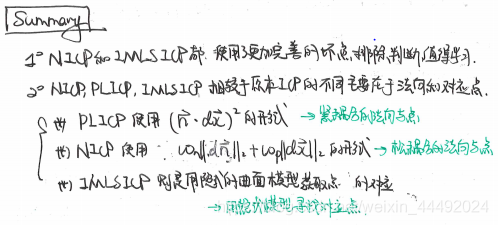 Summary
1° NICP和IMLSICP都使用了更加完善的坏点排除判断,值得学习.
2° NICP, PLICP, IMLSICP 相较于原本ICP的不同主要在于法向和对应点.
(*) PLICP 使用 (n⃗·dx⃗)² 的形式 → 紧耦合的法向与点
(*) NICP 使用: ωn||dn⃗||₂+ωp||dx⃗||₂ 的形式 → 松耦合的法向与点
(*) IMLSICP 则是用隐式的曲面模型获取点的对应
→ 用隐式模型寻找对应点
weixin_44492024